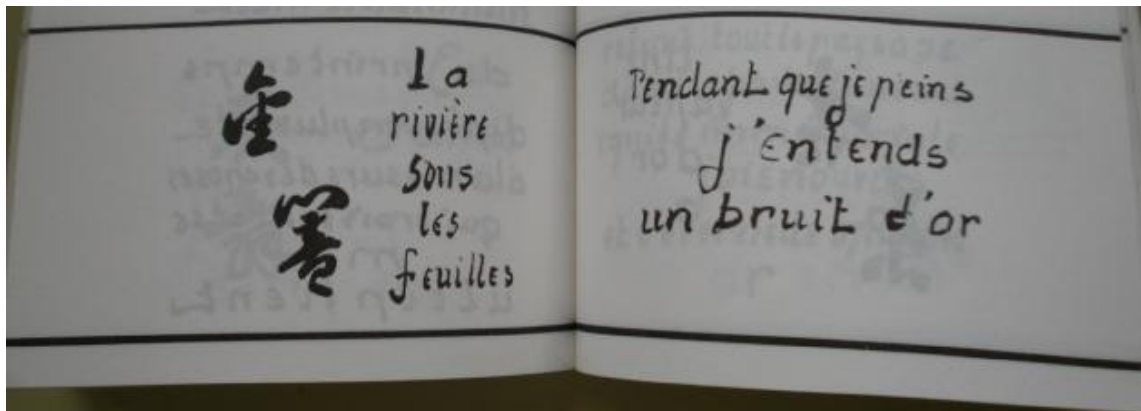 La
rivière
sous
les
feuilles
Pendant que je peins
j'entends
un bruit d'or